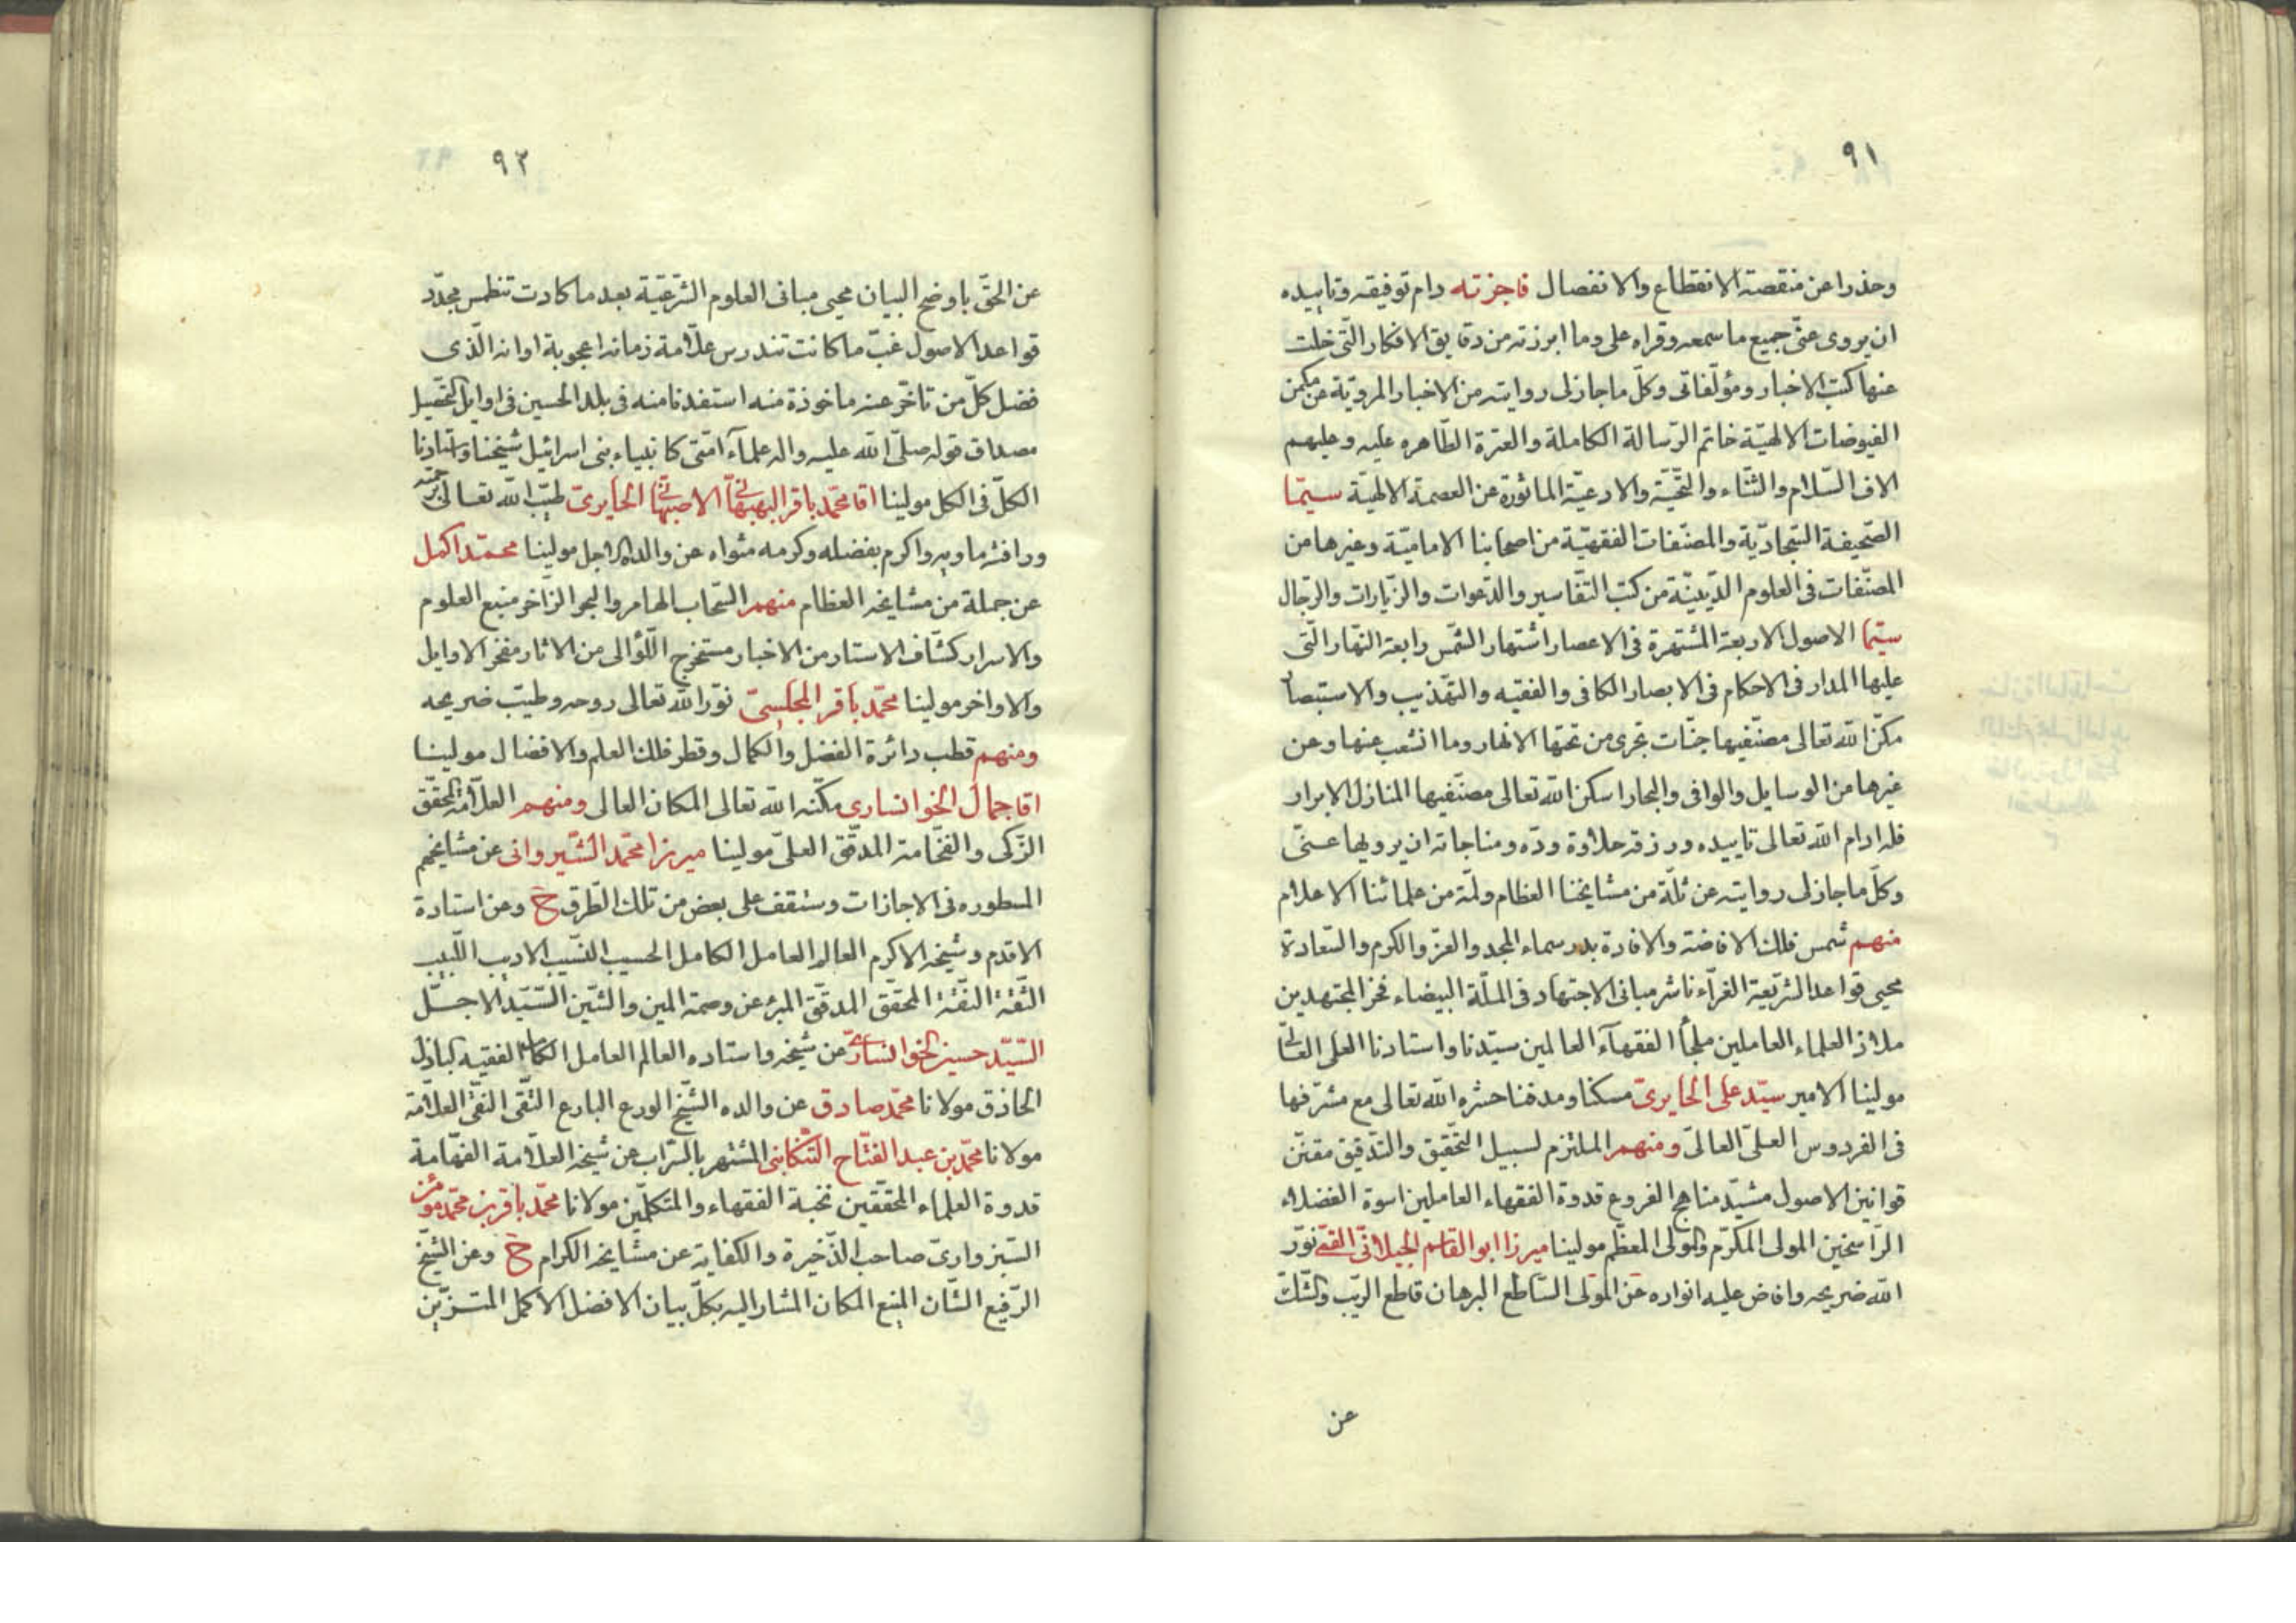 ٩١
وحذرا عن منقصة الانقطاع والانفصال فاجزته دام توفيقه وتاييده
ان يروى عنّى جميع ما سمعه وقراه على وما ابرزته من دقايق الافكار الّتى خلت
عنها كتب الاخبار ومؤلّفاتى وكلّ ما جاز لى روايته من الاخبار المرويّة عن مكمن
الفيوضات الالهيّة خاتم الرّسالة الكاملة والعترة الطّاهره عليه وعليهم
الاف السّلام والثّناء والتّحيّة والادعيّة الماثورة عن العصمة الالهيّة سيّما
الصّحيفة السّجاديّة والمصنّفات الفقهيّة من اصحابنا الاماميّة وغيرها من
المصنّفات فى العلوم الدّينيّة من كتب التّفاسير والدّعوات والزّيارات والرّجال
سيّما الاصول الاربعة المشتهرة فى الاعصار اشتهار الشّمس رابعة النّهار الّتى
عليها المدار فى الاحكام فى الابصار الكافى والفقيه والتّهذيب والاستبصار
مكّن الله تعالى مصنّفيها جنّات تجرى من تحتها الانهار وما انشعب عنها وعن
غيرها من الوسايل والوافى والبحار اسكن الله تعالى مصنّفيها المنازل الابرار
فله ادام الله تعالى تاييده ورزقه حلاوة ودّه ومناجاته ان يرويها عنّى
وكلّ ما جاز لى روايته عن ثلّة من مشايخنا العظام ولمّة من علمائنا الاعلام
منهم شمس فلك الافاضة والافادة بدر سماء المجد والعزّ والكرم والسّعادة
محيى قواعد الشّريعة الغرّاء ناشر مبانى الاجتهاد فى الملّة البيضاء فخر المجتهدين
ملاذ العلماء العاملين ملجأ الفقهآء العالمين سيّدنا واستادنا العلى العالى
مولينا الامير سيّد على الحايرىّ مسكنا ومدفنا حشره الله تعالى مع مشرّفها
فى الفردوس العلىّ العالىّ ومنهم الملتزم لسبيل التّحقيق والتّدقيق مقنّن
قوانين الاصول مشيّد مناهج الفروع قدوة الفقهاء العاملين اسوة الفضلاء
الرّاسخين المولى المكرّم والمولى المعظّم مولينا ميرزا ابو القاسم الجيلانىّ القمّى نوّر
الله ضريحه وافاض عليه انواره عن المولى السّاطع البرهان قاطع الرّيب والشّك
عن
٩٢
عن الحقّ باوضح البيان محيى مبانى العلوم الشّرعيّة بعد ما كادت تنطمس مجدّد
قواعد الاصول غبّ ما كانت تندرس علّامة زمانه اعجوبة اوانه الّذى
فضل كلّ من تاخّر عنه ماخوذة منه استفدنا منه فى بلد الحسين فى اوايل التّحصيل
مصداق قوله صلّى الله عليه واله علمآء امّتى كانبياء بنى اسرائيل شيخنا واستادنا
الكلّ فى الكل مولينا اقا محمّد باقر البهبهانى الاصبهانى الحايرىّ طيّب الله تعالى تربته
ورافته ماويه واكرم بفضله وكرمه مثواه عن والده الاجل مولينا محمّد اكمل
عن جملة من مشايخه العظام منهم السّحاب الهامر والبحر الزّاخر منبع العلوم
والاسرار كشّاف الاستار من الاخبار مستخرج اللّؤالى من الاثار مفخر الاوايل
والاواخر مولينا محمّد باقر المجلسىّ نوّر الله تعالى روحه وطيّب ضريحه
ومنهم قطب دائرة الفضل والكمال وقطر فلك العلم والافضال مولينا
اقا جمال الخوانسارى مكّنه الله تعالى المكان العالى ومنهم العلّامة المحقّق
الزّكى والفهّامة المدقّق العلىّ مولينا ميرزا محمّد الشّيروانى عن مشايخهم
المسطوره فى الاجازات وستقف على بعض من تلك الطّرق ح وعن استادة
الاقدم وشيخه الاكرم العالم العامل الكامل الحسيب النّسيب الاديب اللّبيب
الثّقة النّقة المحقّق المدقّق المبرّء عن وصمة المين والشّين السّيّد الاجلّ
السّيّد حسين الخوانسارىّ عن شيخه واستاده العالم العامل الكامل الفقيه الباذل
الحاذق مولانا محمّد صادق عن والده الشّيخ الورع البارع التّقى النّقى العلّامة
مولانا محمّد بن عبد الفتّاح التّنكابنى المشتهر بالسّراب عن شيخه العلّامة الفهّامة
قدوة العلماء المحقّقين نخبة الفقهاء والمتكلّمين مولانا محمّد باقر بن محمّد مؤمن
السّبزوارىّ صاحب الذّخيرة والكفاية عن مشايخه الكرام ح وعن الشّيخ
الرّفيع الشّان المنيع المكان المشار اليه بكلّ بيان الافضل الاكمل المتزيّن